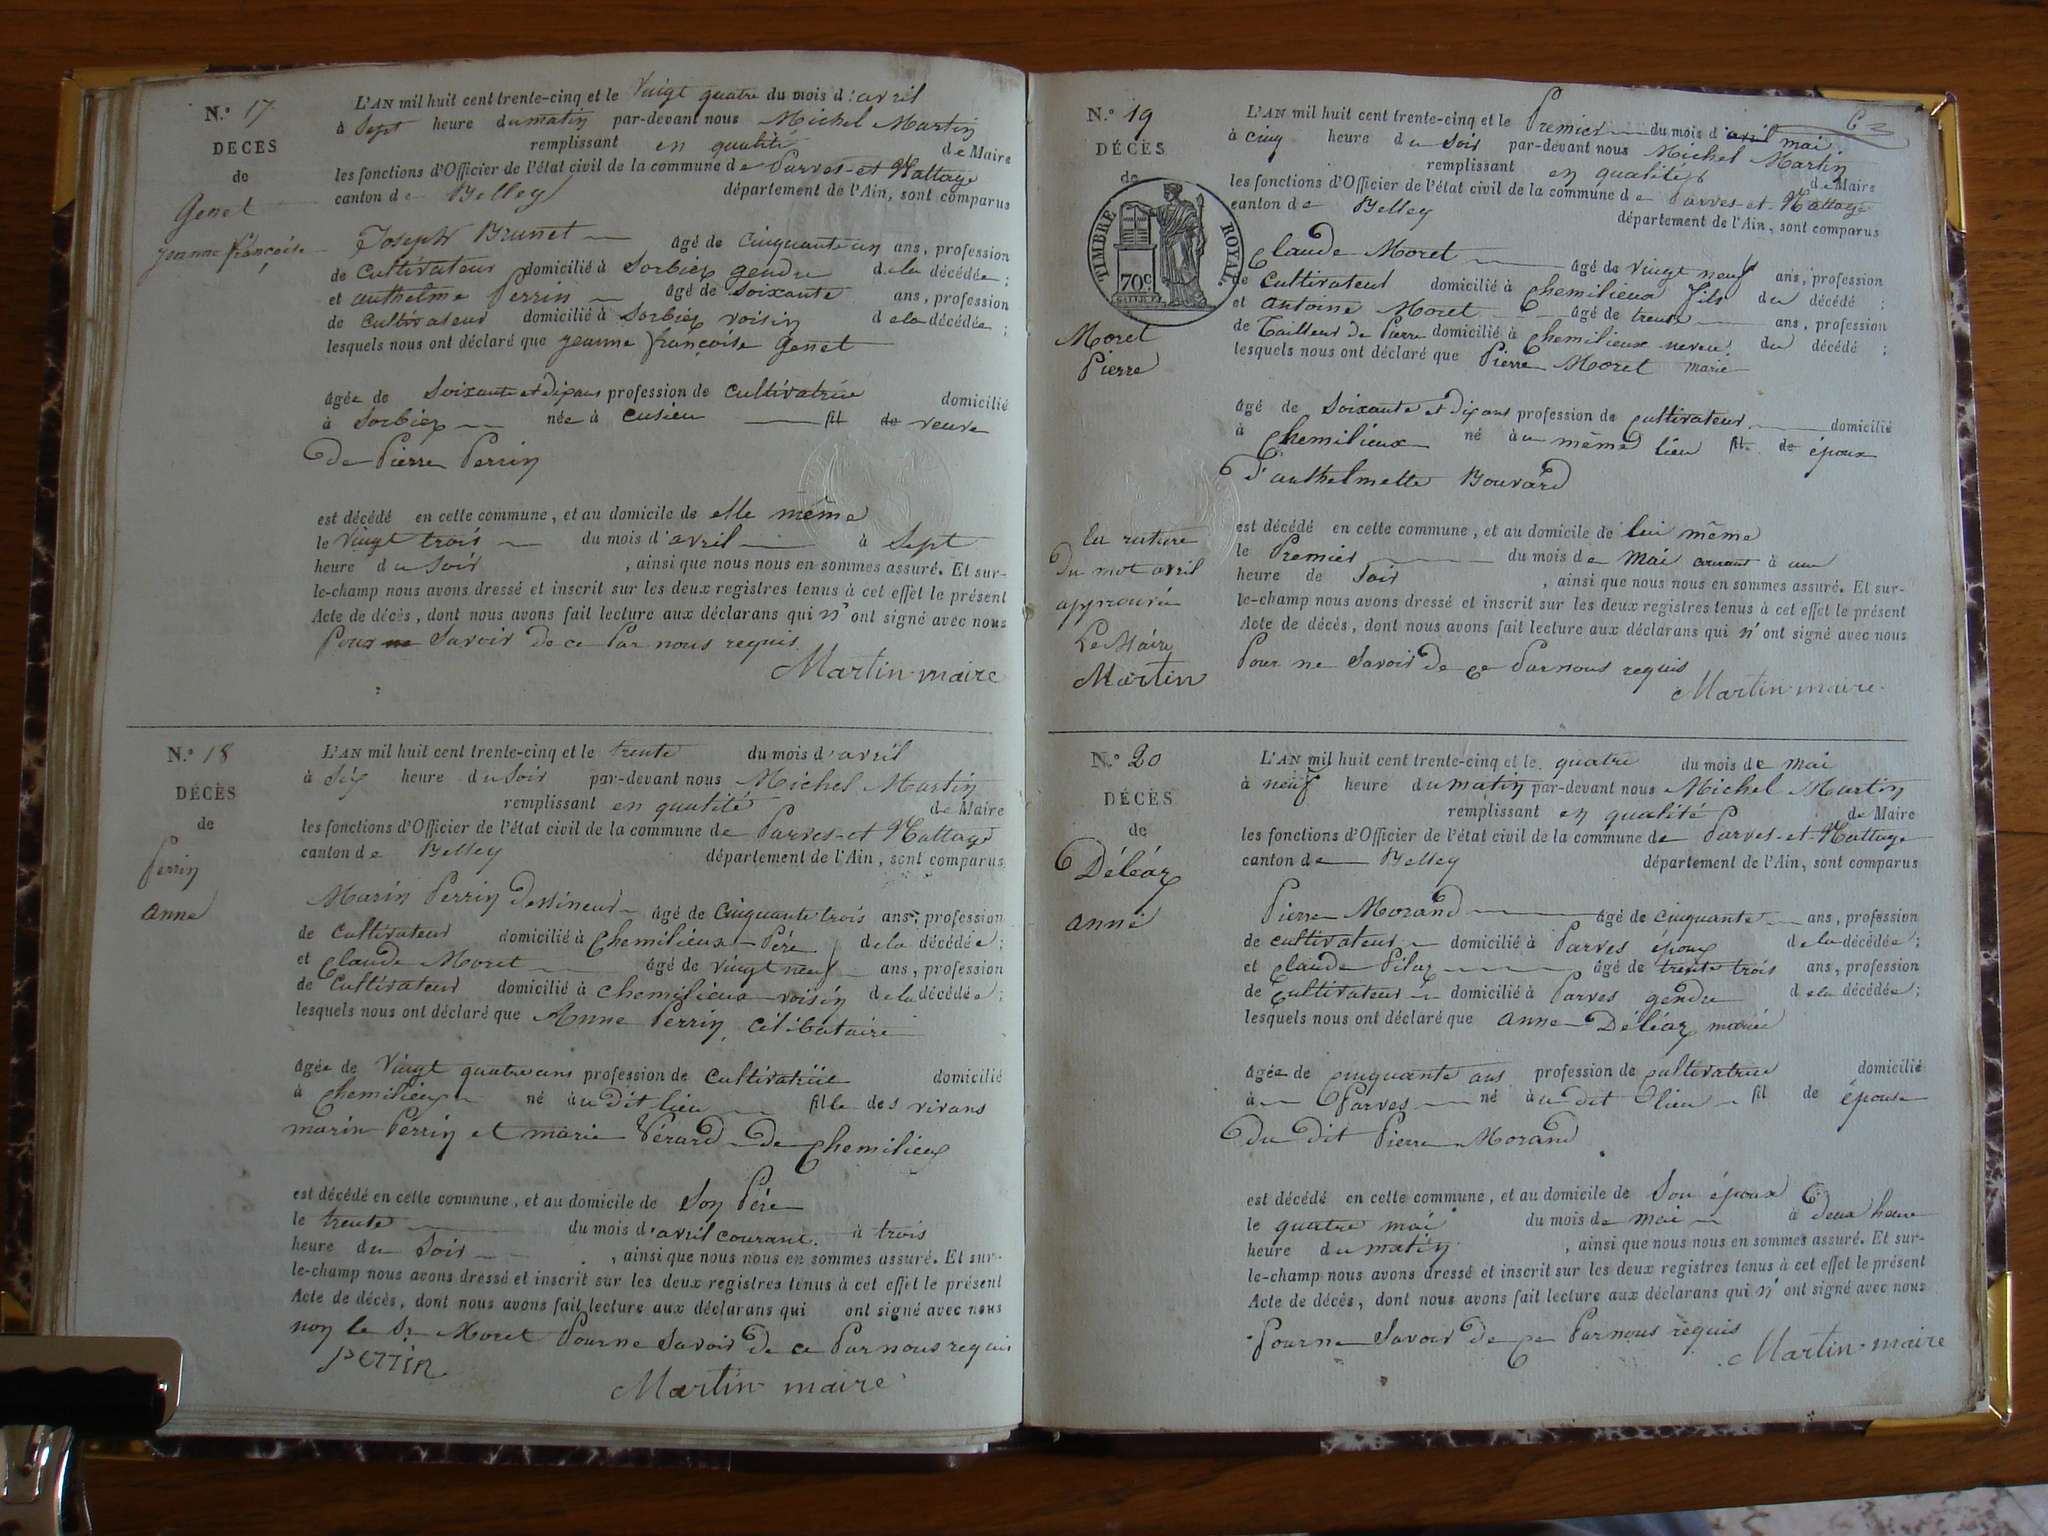 N.° 17
DÉCÈS
de
Genet
jeanne françoise
L'AN mil huit cent trente-cinq et le vingt quatre du mois d'avril
à sept heure du matin par-devant nous Michel Martin
remplissant en qualité de Maire
les fonctions d'Officier de l'état civil de la commune de Parves-et-Nattage
canton de Belley département de l'Ain, sont comparus
Joseph Brunet âgé de cinquante un ans, profession
de cultivateur domicilié à Sorbiex gendre de la décédée ;
et anthelme Perrin âgé de soixante ans, profession
de cultivateur domicilié à Sorbiex voisin de la décédée ;
lesquels nous ont déclaré que jeanne françoise Genet
âgée de soixante et dix ans profession de cultivatrice domicilié
à Sorbiex née à cusieu fil de veuve
De Pierre Perrin
est décédé en cette commune, et au domicile de elle même
le vingt trois du mois d'avril à sept
heure du soir , ainsi que nous nous en sommes assuré. Et sur-
le-champ nous avons dressé et inscrit sur les deux registres tenus à cet effet le présent
Acte de décès, dont nous avons fait lecture aux déclarans qui n'ont signé avec nous
Pour ne savoir de ce Par nous requis
Martin maire
N.° 18
DÉCÈS
de
Perrin
anne
L'AN mil huit cent trente-cinq et le trente du mois d'avril
à six heure du soir par-devant nous Michel Martin
remplissant en qualité de Maire
les fonctions d'Officier de l'état civil de la commune de Parves-et-Nattage
canton de Belley département de l'Ain, sont comparus
Marin Perrin Dessineur âgé de cinquante trois ans, profession
de cultivateur domicilié à chemilieux Père de la décédée ;
et Claude Moret âgé de vingt neuf ans, profession
de cultivateur domicilié à chemilieux voisin de la décédée ;
lesquels nous ont déclaré que Anne Perrin célibataire
âgée de vingt quatre ans profession de cultivatrice domicilié
à chemilieux né au dit lieu fille des vivans
marin Perrin et marie Vérard de chemilieux
est décédé en cette commune, et au domicile de son Père
le trente du mois d'avril courant à trois
heure du soir , ainsi que nous nous en sommes assuré. Et sur-
le-champ nous avons dressé et inscrit sur les deux registres tenus à cet effet le présent
Acte de décès, dont nous avons fait lecture aux déclarans qui ont signé avec nous
non le Sr Moret Pour ne savoir de ce Par nous requis
Perrin
Martin maire
N.° 19
DÉCÈS
de
TIMBRE ROYAL
70c
Moret
Pierre
L'AN mil huit cent trente-cinq et le Premier du mois d'avril mai
à cinq heure du soir par-devant nous Michel Martin
remplissant en qualité de Maire
les fonctions d'Officier de l'état civil de la commune de Parves-et-Nattage
canton de Belley département de l'Ain, sont comparus
Claude Moret âgé de vingt neuf ans, profession
de cultivateur domicilié à chemilieux fils du décédé ;
et Antoine Moret âgé de trente ans, profession
de Tailleur de Pierre domicilié à chemilieux neveu du décédé ;
lesquels nous ont déclaré que Pierre Moret marié
âgé de soixante et dix ans profession de cultivateur domicilié
à chemilieux né au même lieu fil de époux
d'anthelmette Bouvard
la rature
du mot avril
approuvée
Le Maire
Martin
est décédé en cette commune, et au domicile de lui même
le Premier du mois de mai courant à une
heure de soir , ainsi que nous nous en sommes assuré. Et sur-
le-champ nous avons dressé et inscrit sur les deux registres tenus à cet effet le présent
Acte de décès, dont nous avons fait lecture aux déclarans qui n'ont signé avec nous
Pour ne savoir de ce Par nous requis
Martin maire
N.° 20
DÉCÈS
de
Déléaz
anne
L'AN mil huit cent trente-cinq et le quatre du mois de mai
à neuf heure du matin par-devant nous Michel Martin
remplissant en qualité de Maire
les fonctions d'Officier de l'état civil de la commune de Parves-et-Nattage
canton de Belley département de l'Ain, sont comparus
Pierre Morand âgé de cinquante ans, profession
de cultivateur domicilié à Parves époux de la décédée ;
et Claude Pilaz âgé de trente trois ans, profession
de cultivateur domicilié à Parves gendre de la décédée ;
lesquels nous ont déclaré que anne Déléaz mariée
âgée de cinquante ans profession de cultivatrice domicilié
à Parves né au dit lieu fil de épouse
Du dit Pierre Morand
est décédé en cette commune, et au domicile de son époux
le quatre mai du mois de mai à deux heure
heure du matin , ainsi que nous nous en sommes assuré. Et sur-
le-champ nous avons dressé et inscrit sur les deux registres tenus à cet effet le présent
Acte de décès, dont nous avons fait lecture aux déclarans qui n'ont signé avec nous
Pour ne savoir de ce Par nous requis
Martin maire